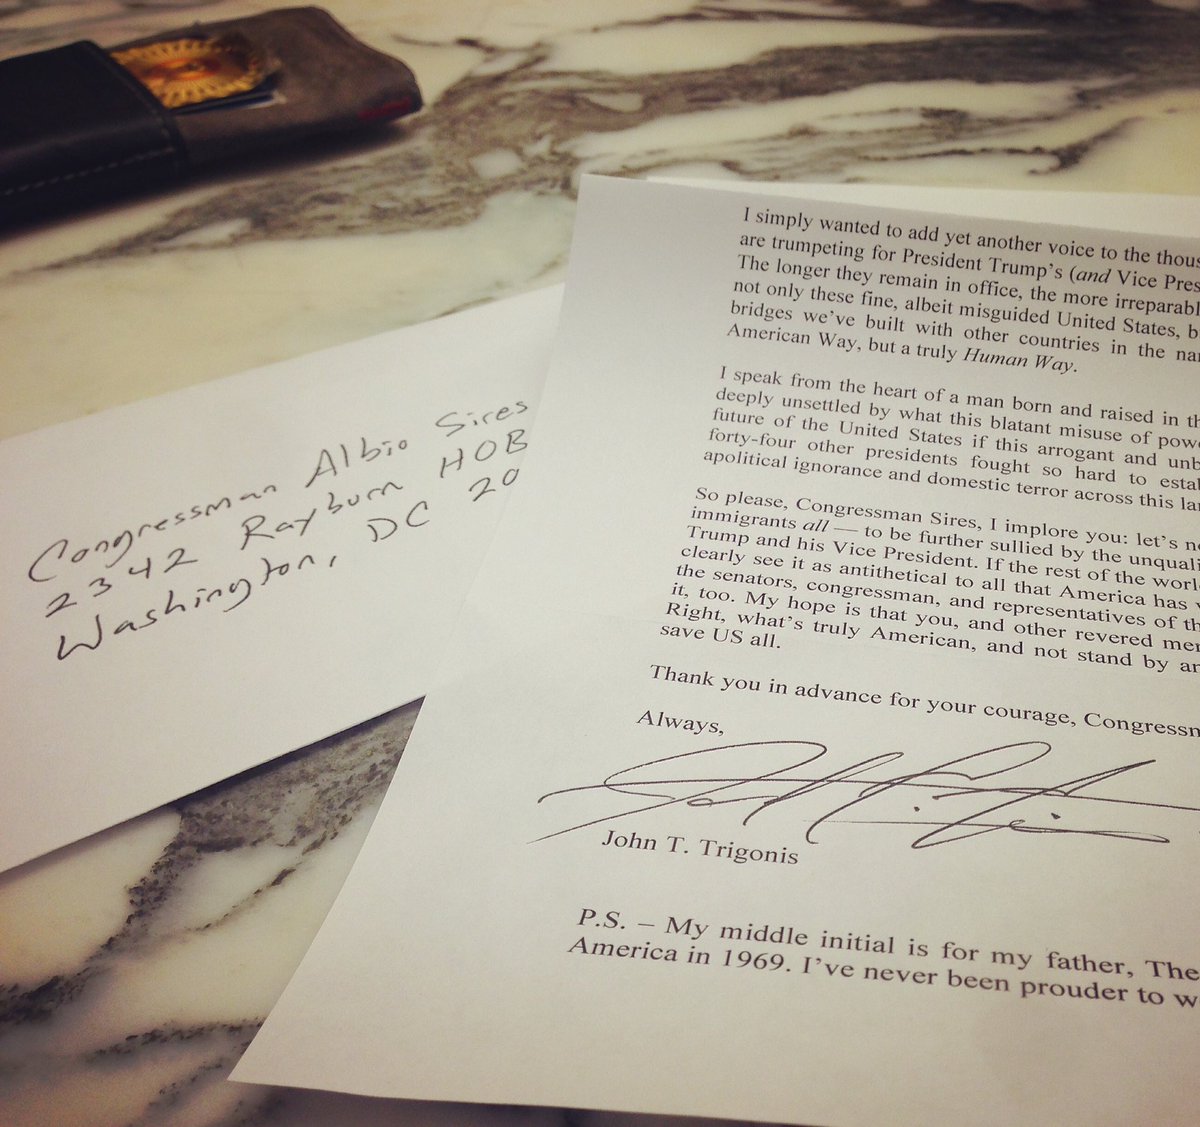 Congressman Albio Sires
2342 Rayburn HOB
Washington, DC 20
I simply wanted to add yet another voice to the thous
are trumpeting for President Trump's (and Vice Pres
The longer they remain in office, the more irreparabl
not only these fine, albeit misguided United States, b
bridges we've built with other countries in the na
American Way, but a truly Human Way.
I speak from the heart of a man born and raised in th
deeply unsettled by what this blatant misuse of powe
future of the United States if this arrogant and unb
forty-four other presidents fought so hard to estal
apolitical ignorance and domestic terror across this lan
So please, Congressman Sires, I implore you: let's no
immigrants all — to be further sullied by the unquali
Trump and his Vice President. If the rest of the worl
clearly see it as antithetical to all that America has
the senators, congressman, and representatives of th
it, too. My hope is that you, and other revered mem
Right, what's truly American, and not stand by an
save US all.
Thank you in advance for your courage, Congressm
Always,
John T. Trigonis
P.S. – My middle initial is for my father, The
America in 1969. I've never been prouder to w